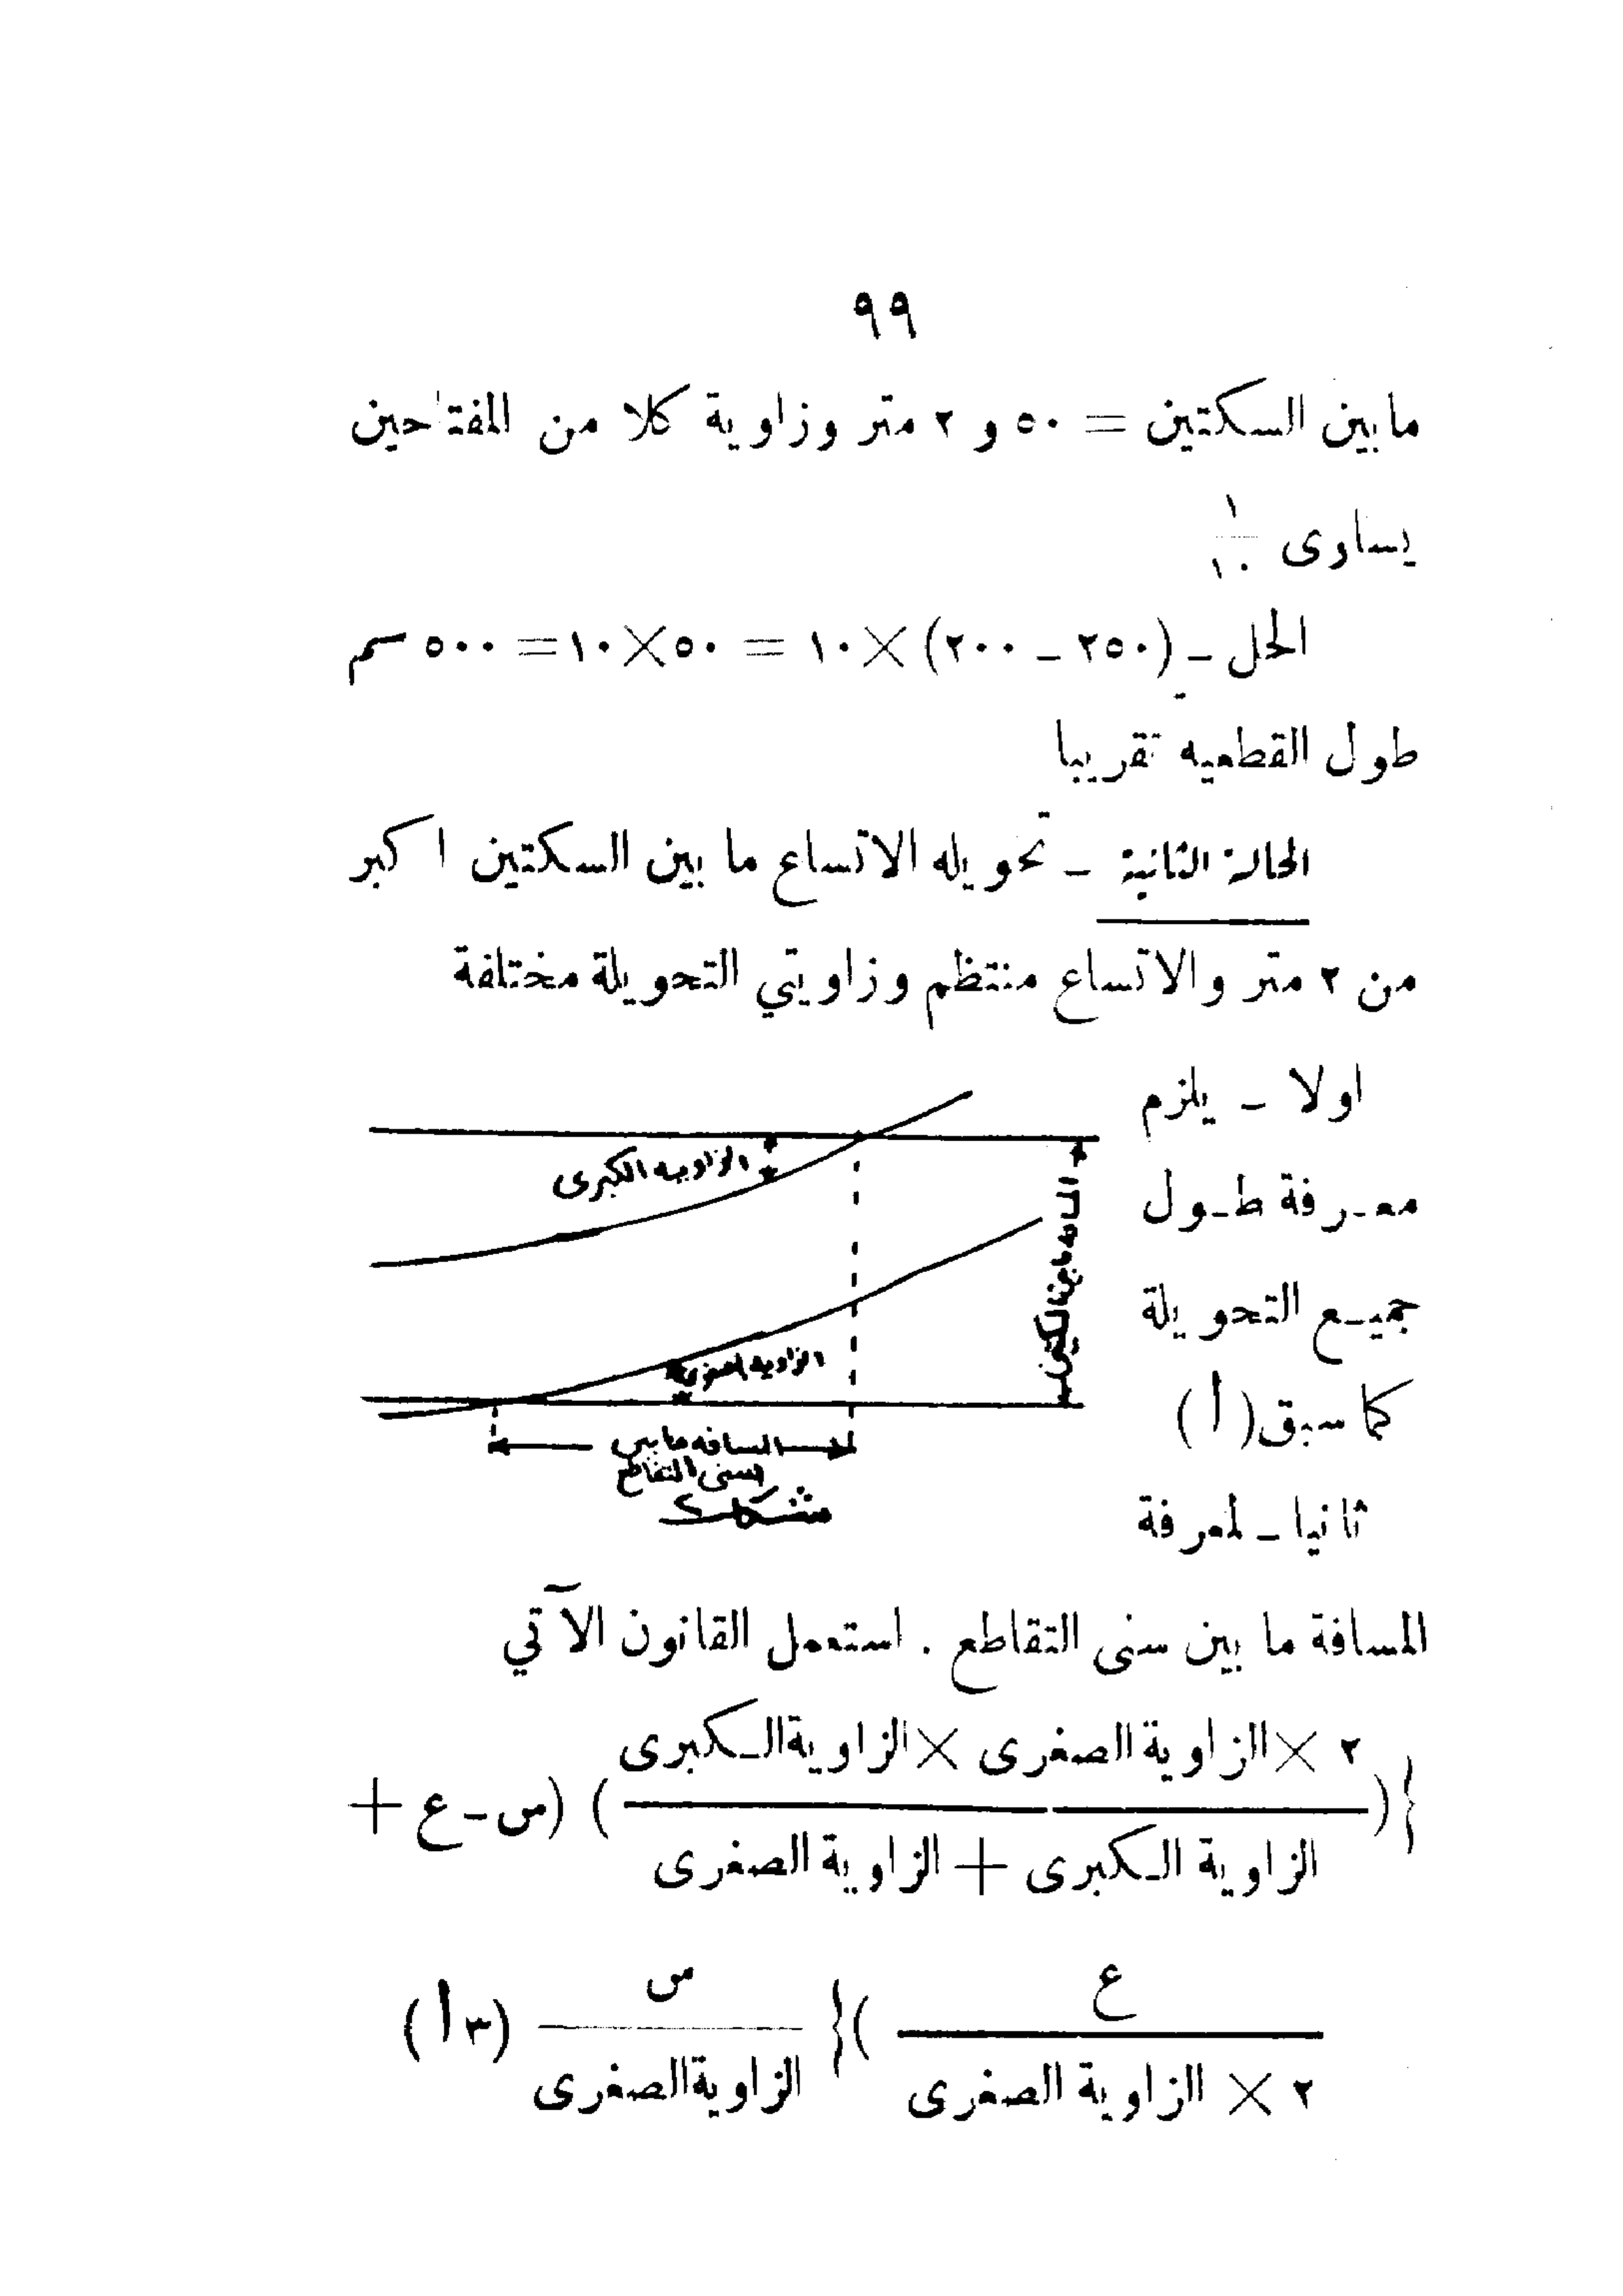 ٩٩
مابين السكتين = ٥٠ و ٢ متر وزاوية كلا من المفتاحين
يساوى ١/١٠
الحل – (٢٥٠ – ٢٠٠) × ١٠ = ٥٠ × ١٠ = ٥٠٠ سم
طول القطعيه تقريبا
الحالة الثانية – تحويله الاتساع ما بين السكتين اكبر
من ٢ متر والاتساع منتظم وزاويتي التحويلة مختلفة
اولا – يلزم
معرفة طول
جميع التحويلة
كما سبق (أ)
ثانيا – لمعرفة
الزاويه الكبرى
الزاويه الصغرى
المسافه مابين السكتين
المسافه مابين
سنى التقاطع
شكل ٢
المسافة ما بين سنى التقاطع . استعمل القانون الآتي
٢ × الزاوية الصغرى × الزاوية الكبرى
{( ) (س – ع +
الزاوية الكبرى + الزاوية الصغرى
ع س
)} (٣أ)
٢ × الزاوية الصغرى الزاوية الصغرى